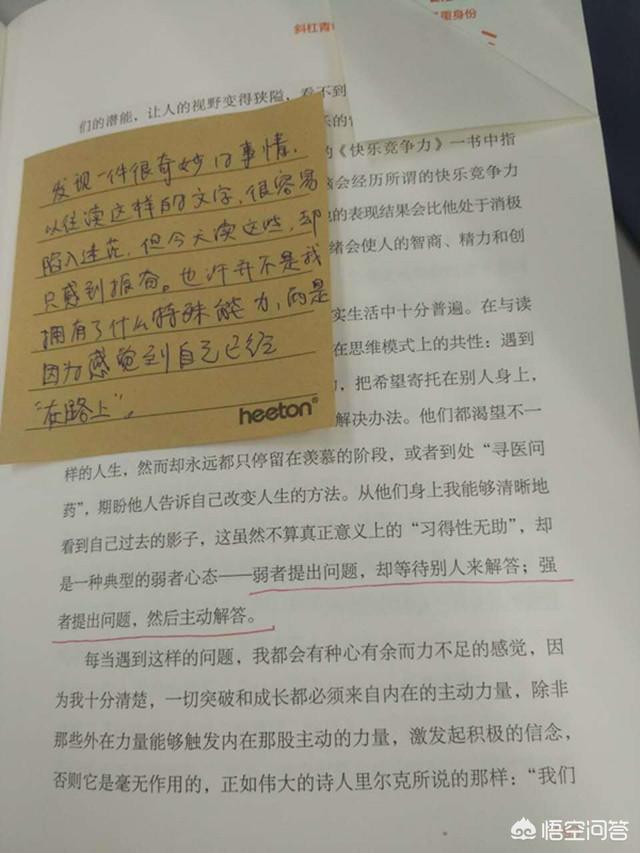 斜杠青
重身份
们的潜能，让人的视野变得狭隘，看不到
的《快乐竞争力》一书中指
绪会经历所谓的快乐竞争力
的表现结果会比他处于消极
绪会使人的智商、精力和创
实生活中十分普遍。在与读
在思维模式上的共性：遇到
，把希望寄托在别人身上，
解决办法。他们都渴望不一
样的人生，然而却永远都只停留在羡慕的阶段，或者到处“寻医问
药”，期盼他人告诉自己改变人生的方法。从他们身上我能够清晰地
看到自己过去的影子，这虽然不算真正意义上的“习得性无助”，却
是一种典型的弱者心态——弱者提出问题，却等待别人来解答；强
者提出问题，然后主动解答。
每当遇到这样的问题，我都会有种心有余而力不足的感觉，因
为我十分清楚，一切突破和成长都必须来自内在的主动力量，除非
那些外在力量能够触发内在那股主动的力量，激发起积极的信念，
否则它是毫无作用的，正如伟大的诗人里尔克所说的那样：“我们
发现一件很奇妙的事情，
以往读这样的文字，很容易
陷入迷茫，但今天读这些，却
只感到振奋。也许并不是我
拥有了什么特殊能力，而是
因为感觉到自己已经
“在路上”。
heeton®
悟空问答